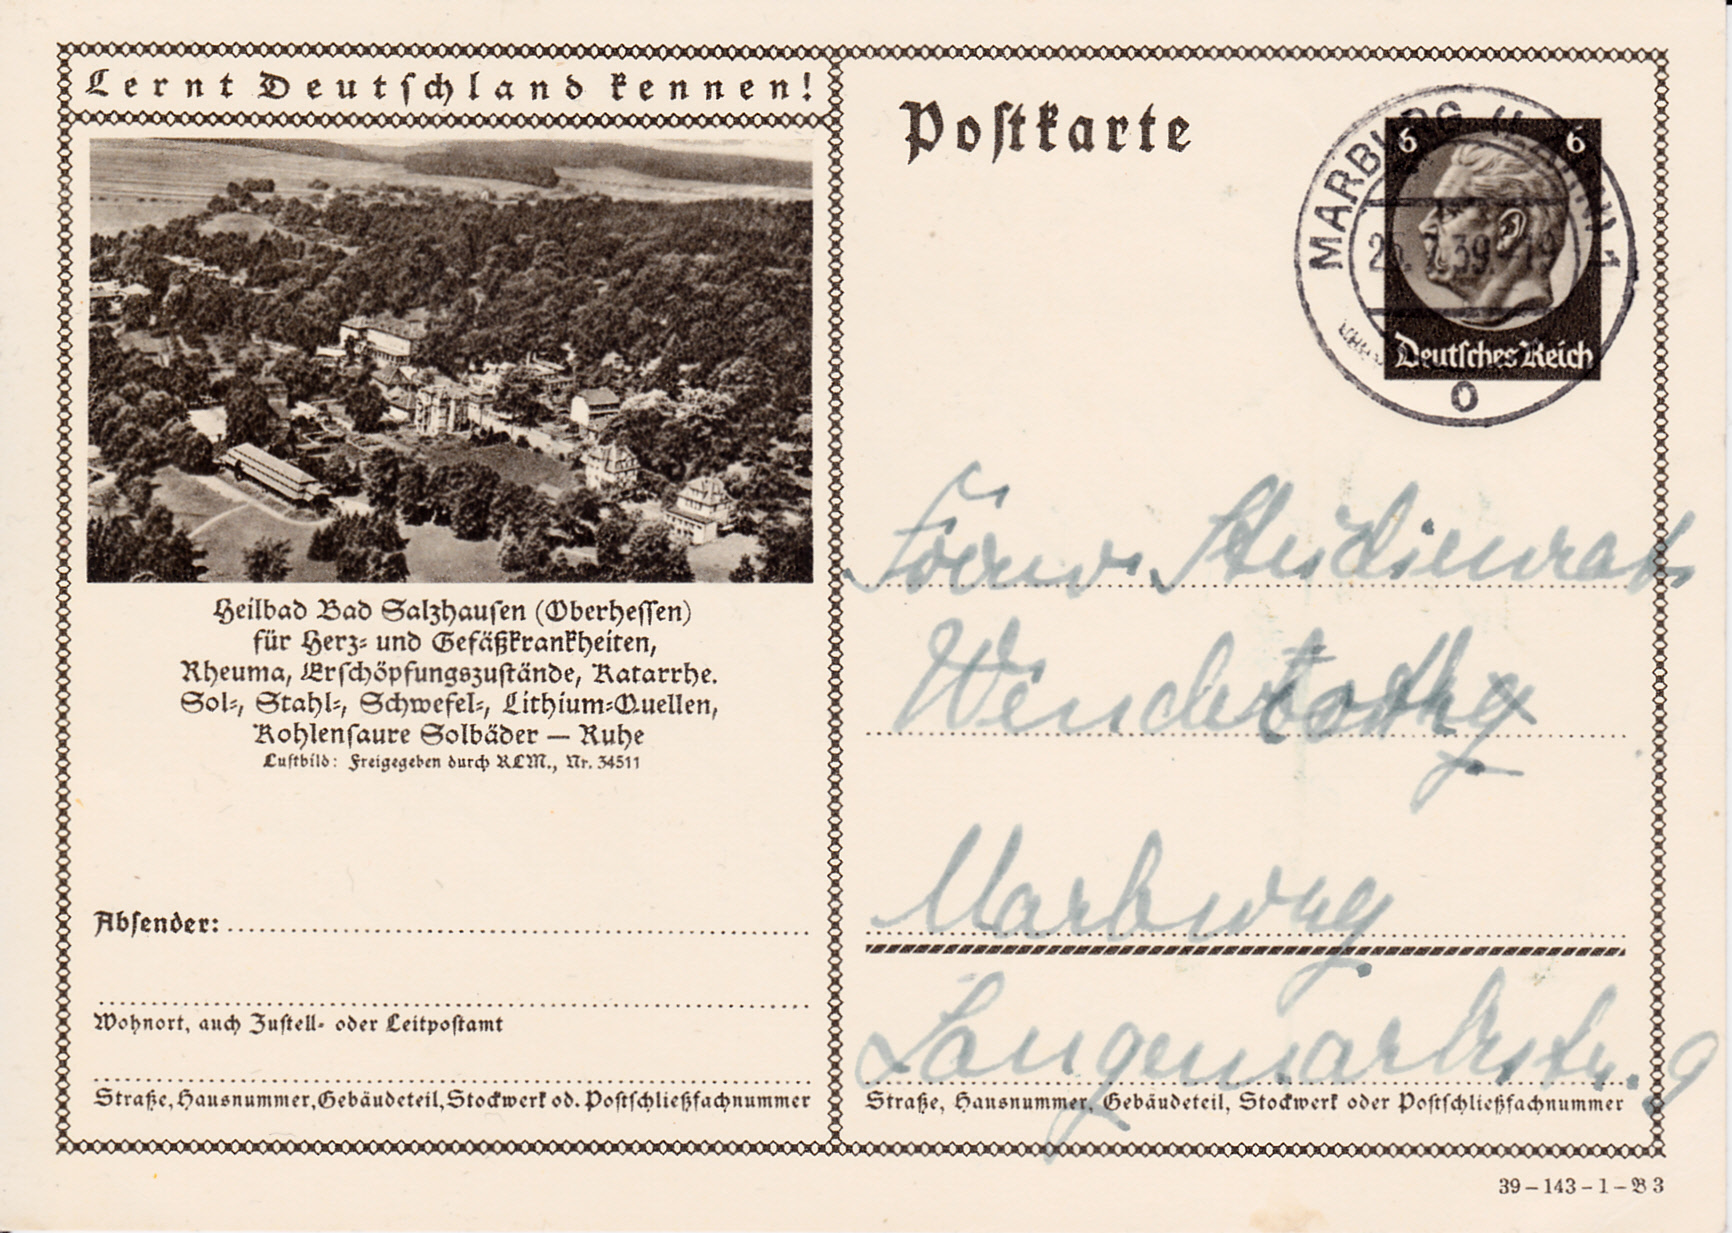 Lernt Deutschland kennen!
Heilbad Bad Salzhausen (Oberhessen)
für Herz- und Gefäßkrankheiten,
Rheuma, Erschöpfungszustände, Katarrhe.
Sol-, Stahl-, Schwefel-, Lithium-Quellen,
Kohlensaure Solbäder — Ruhe
Luftbild: Freigegeben durch RLM., Nr. 34511
Absender:
Wohnort, auch Zustell- oder Leitpostamt
Straße, Hausnummer, Gebäudeteil, Stockwerk od. Postschließfachnummer
Postkarte
6 6
Deutsches Reich
MARBURG (LAHN) 1
39.-19
o
Studienrat
Marburg
Langemarckstr. 9
Straße, Hausnummer, Gebäudeteil, Stockwerk oder Postschließfachnummer
39 – 143 – 1 – B 3